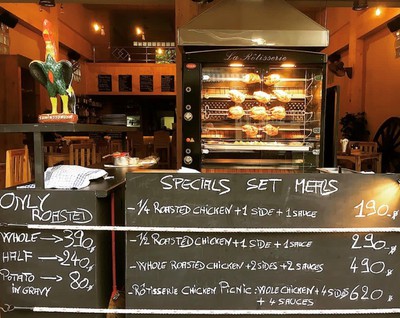 La Rôtisserie
SPECIALS SET MEALS
- 1/4 ROASTED CHICKEN + 1 SIDE + 1 SAUCE 190.-
- 1/2 ROASTED CHICKEN + 1 SIDE + 1 SAUCE 290.-
- WHOLE ROASTED CHICKEN + 2 SIDES + 2 SAUCES 490.-
- RÔTISSERIE CHICKEN PICNIC: WHOLE CHICKEN + 4 SIDES 620.-
+ 4 SAUCES
ONLY
ROASTED
WHOLE → 390.-
HALF → 240.-
POTATO → 80.-
IN GRAVY